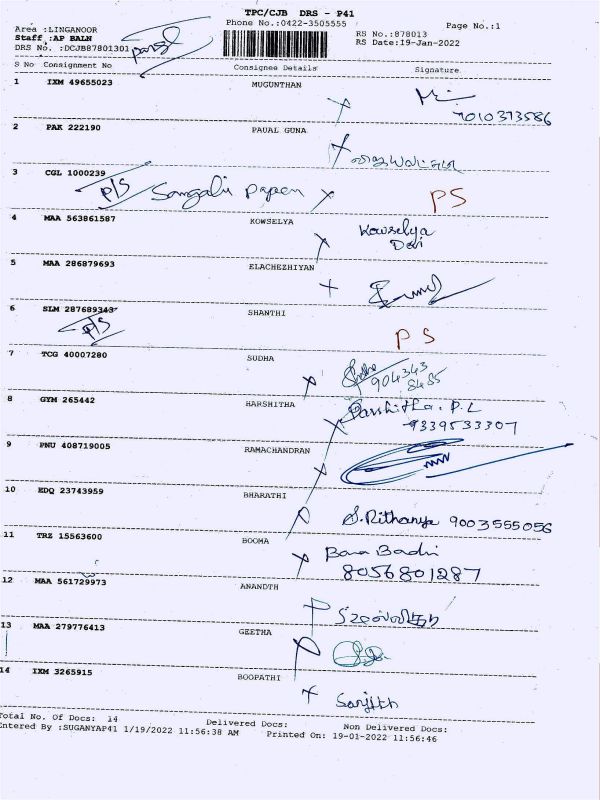 TPC/CJB DRS - P41
Phone No.:0422-3505555
Page No.:1
Area :LINGANOOR
Staff :AP BALN
DRS No. :DCJB87801301
RS No.:878013
RS Date:19-Jan-2022
S No Consignment No Consignee Details Signature
1 IXM 49655023 MUGUNTHAN
7010373586
2 PAK 222190 PAUAL GUNA
3 CGL 1000239
P/S PS
4 MAA 563861587 KOWSELYA Kowselya
Devi
5 MAA 286879693 ELACHEZHIYAN
6 SLM 287689343 SHANTHI
P/S PS
7 TCG 40007280 SUDHA
904343
8485
8 GYM 265442 HARSHITHA Harshitha. P.L
9339533307
9 PNU 408719005 RAMACHANDRAN
10 EDQ 23743959 BHARATHI S.Rithanya 9003555056
11 TRZ 15563600 BOOMA
8056801287
12 MAA 561729973 ANANDTH
13 MAA 279776413 GEETHA
14 IXM 3265915 BOOPATHI Sanjith
Total No. Of Docs: 14 Delivered Docs: Non Delivered Docs:
Entered By :SUGANYAP41 1/19/2022 11:56:38 AM Printed On: 19-01-2022 11:56:46